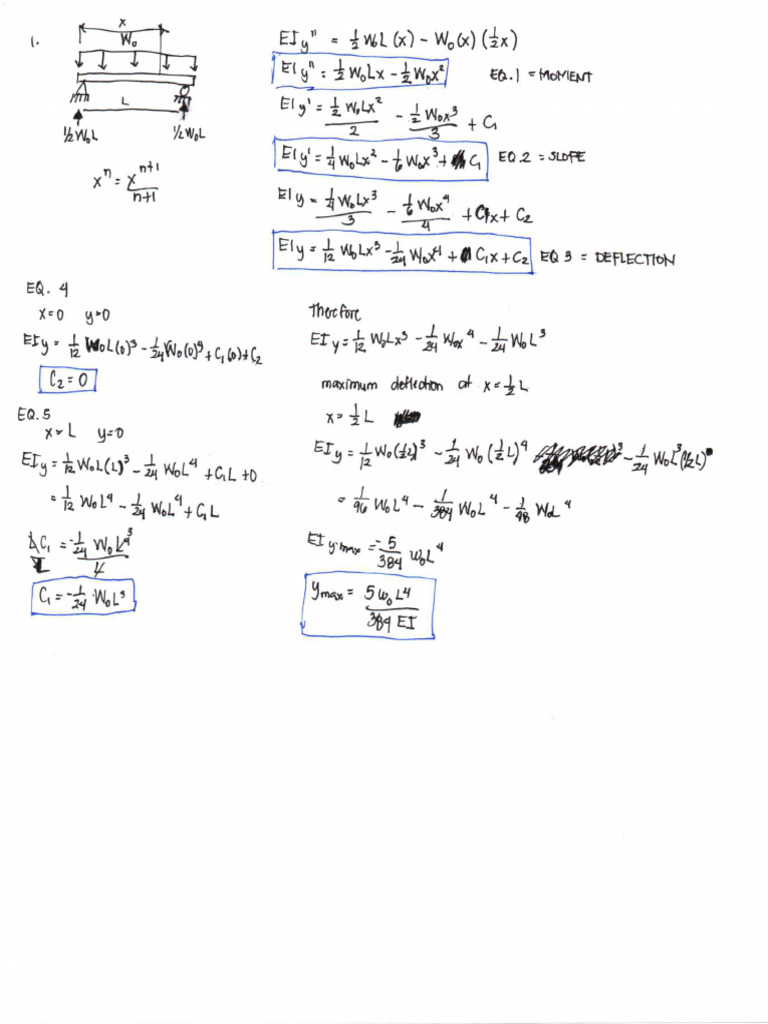 1.
x
W₀
L
½W₀L ½W₀L
xⁿ = x^(n+1) / n+1
EIy" = ½W₀L(x) - W₀(x)(½x)
EIy" = ½W₀Lx - ½W₀x² EQ.1 = MOMENT
EIy' = ½W₀Lx² / 2 - ½W₀x³ / 3 + C₁
EIy' = ¼W₀Lx² - 1/6 W₀x³ + C₁ EQ.2 = SLOPE
EIy = ¼W₀Lx³ / 3 - 1/6 W₀x⁴ / 4 + C₁x + C₂
EIy = 1/12 W₀Lx³ - 1/24 W₀x⁴ + C₁x + C₂ EQ 3 = DEFLECTION
EQ. 4
x=0 y=0
EIy = 1/12 W₀L(0)³ - 1/24 W₀(0)⁴ + C₁(0) + C₂
C₂ = 0
EQ.5
x=L y=0
EIy = 1/12 W₀L(L)³ - 1/24 W₀L⁴ + C₁L + 0
= 1/12 W₀L⁴ - 1/24 W₀L⁴ + C₁L
C₁ = -1/24 W₀L³
therefore
EIy = 1/12 W₀Lx³ - 1/24 W₀x⁴ - 1/24 W₀L³
maximum deflection at x = ½L
x = ½L
EIy = 1/12 W₀(½L)³ - 1/24 W₀(½L)⁴ - 1/24 W₀L³(½L)
= 1/96 W₀L⁴ - 1/384 W₀L⁴ - 1/48 W₀L⁴
EIy max = -5/384 W₀L⁴
y max = 5W₀L⁴ / 384 EI